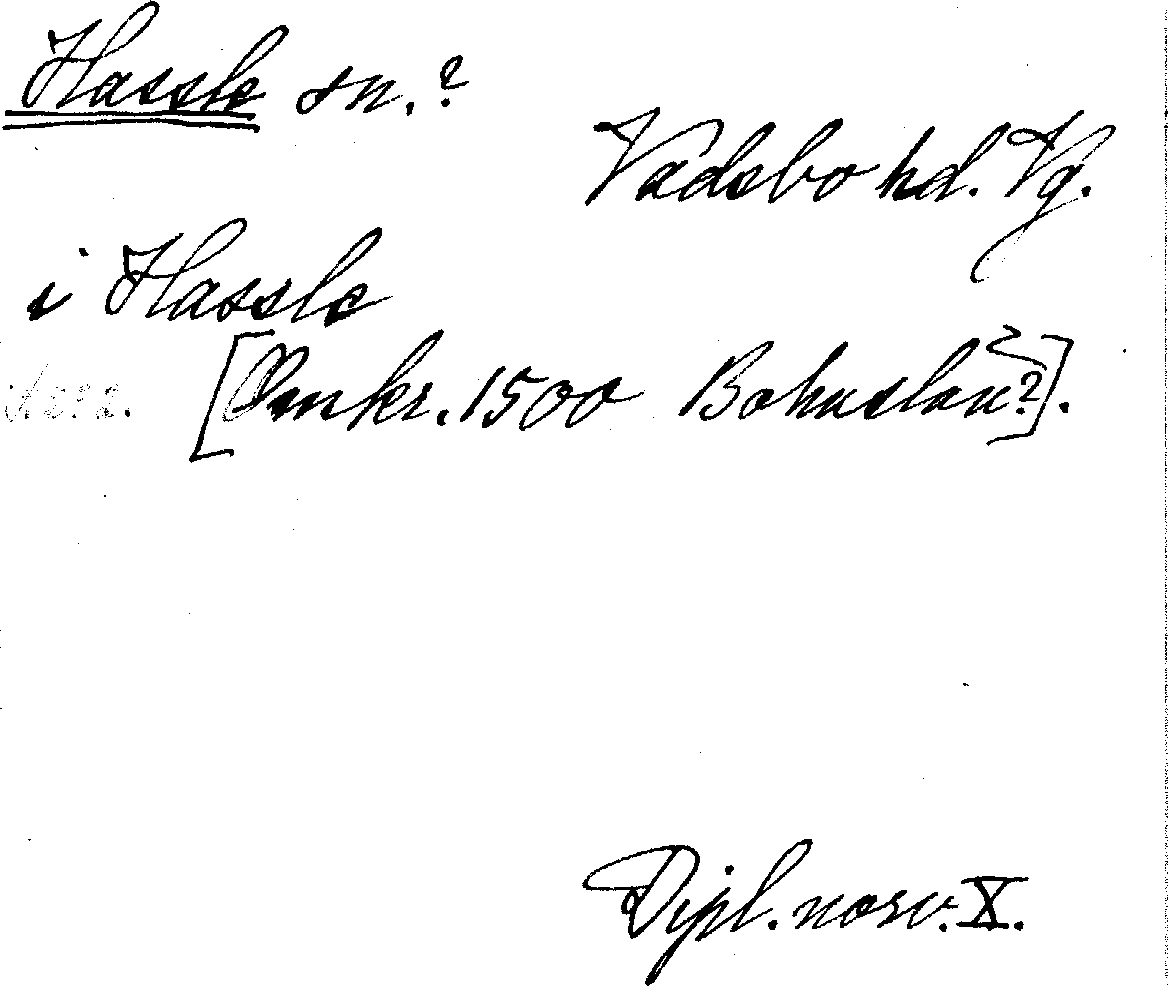 Hassle sn.?
Vadsbo hd. Vg.
i Hassle
[Omkr. 1500 Bohuslän?].
Dipl. norv. X.